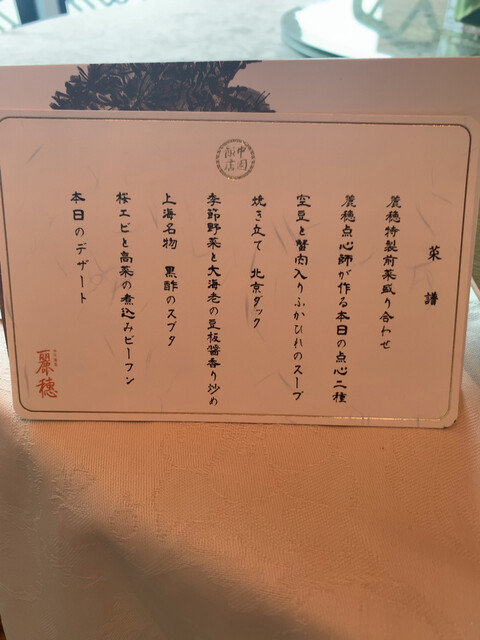 中国
飯店
菜譜
麗穂特製前菜盛り合わせ
麗穂点心師が作る本日の点心二種
空豆と蟹肉入りふかひれのスープ
焼き立て 北京ダック
季節野菜と大海老の豆板醬香り炒め
上海名物 黒酢のスブタ
桜エビと高菜の煮込みビーフン
本日のデザート
麗穂